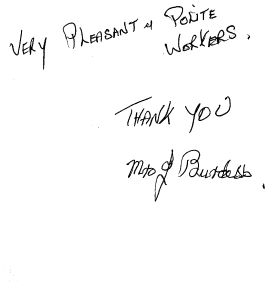 VERY PLEASANT & POLITE
WORKERS.
THANK YOU
Mrs J